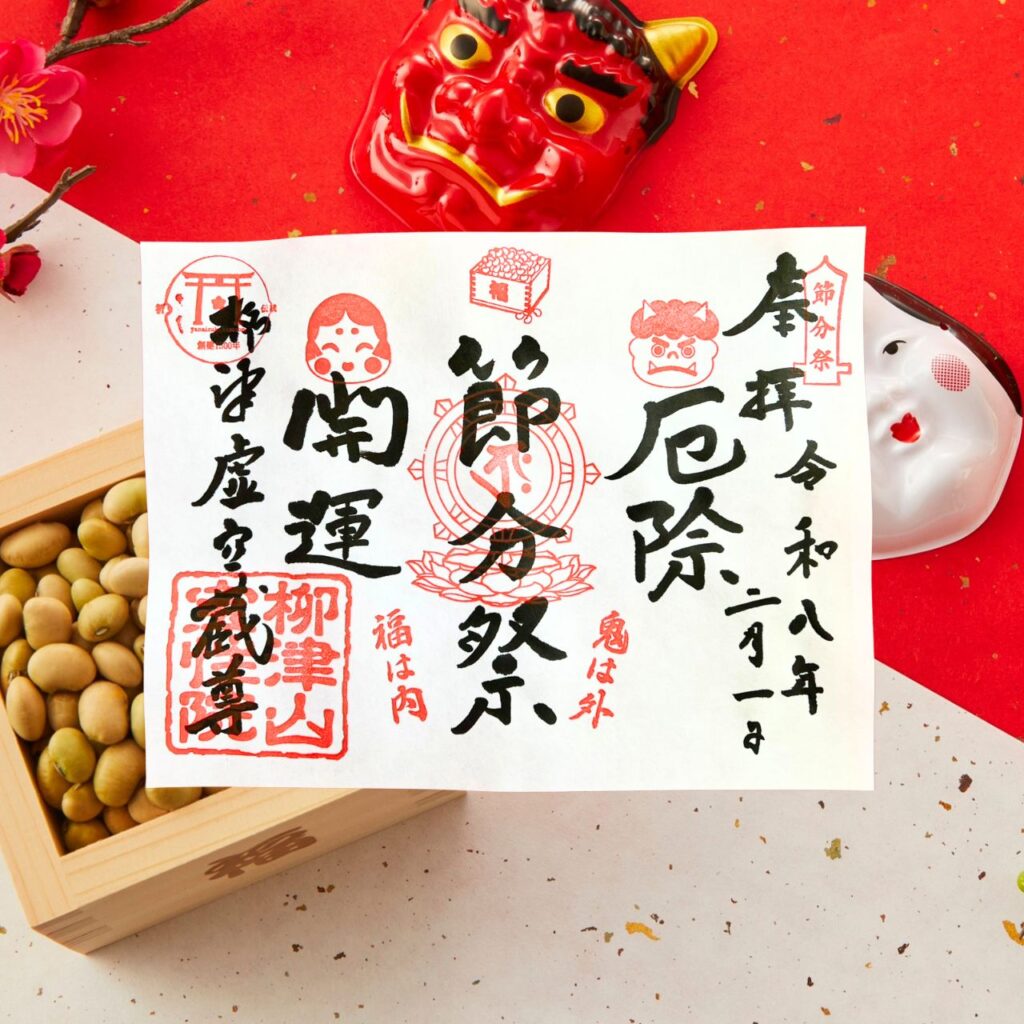 節分祭
奉拝
令和八年
二月一日
厄除
鬼は外
福
節分祭
開運
福は内
柳津虚空蔵尊
柳津山
創建1300年
福